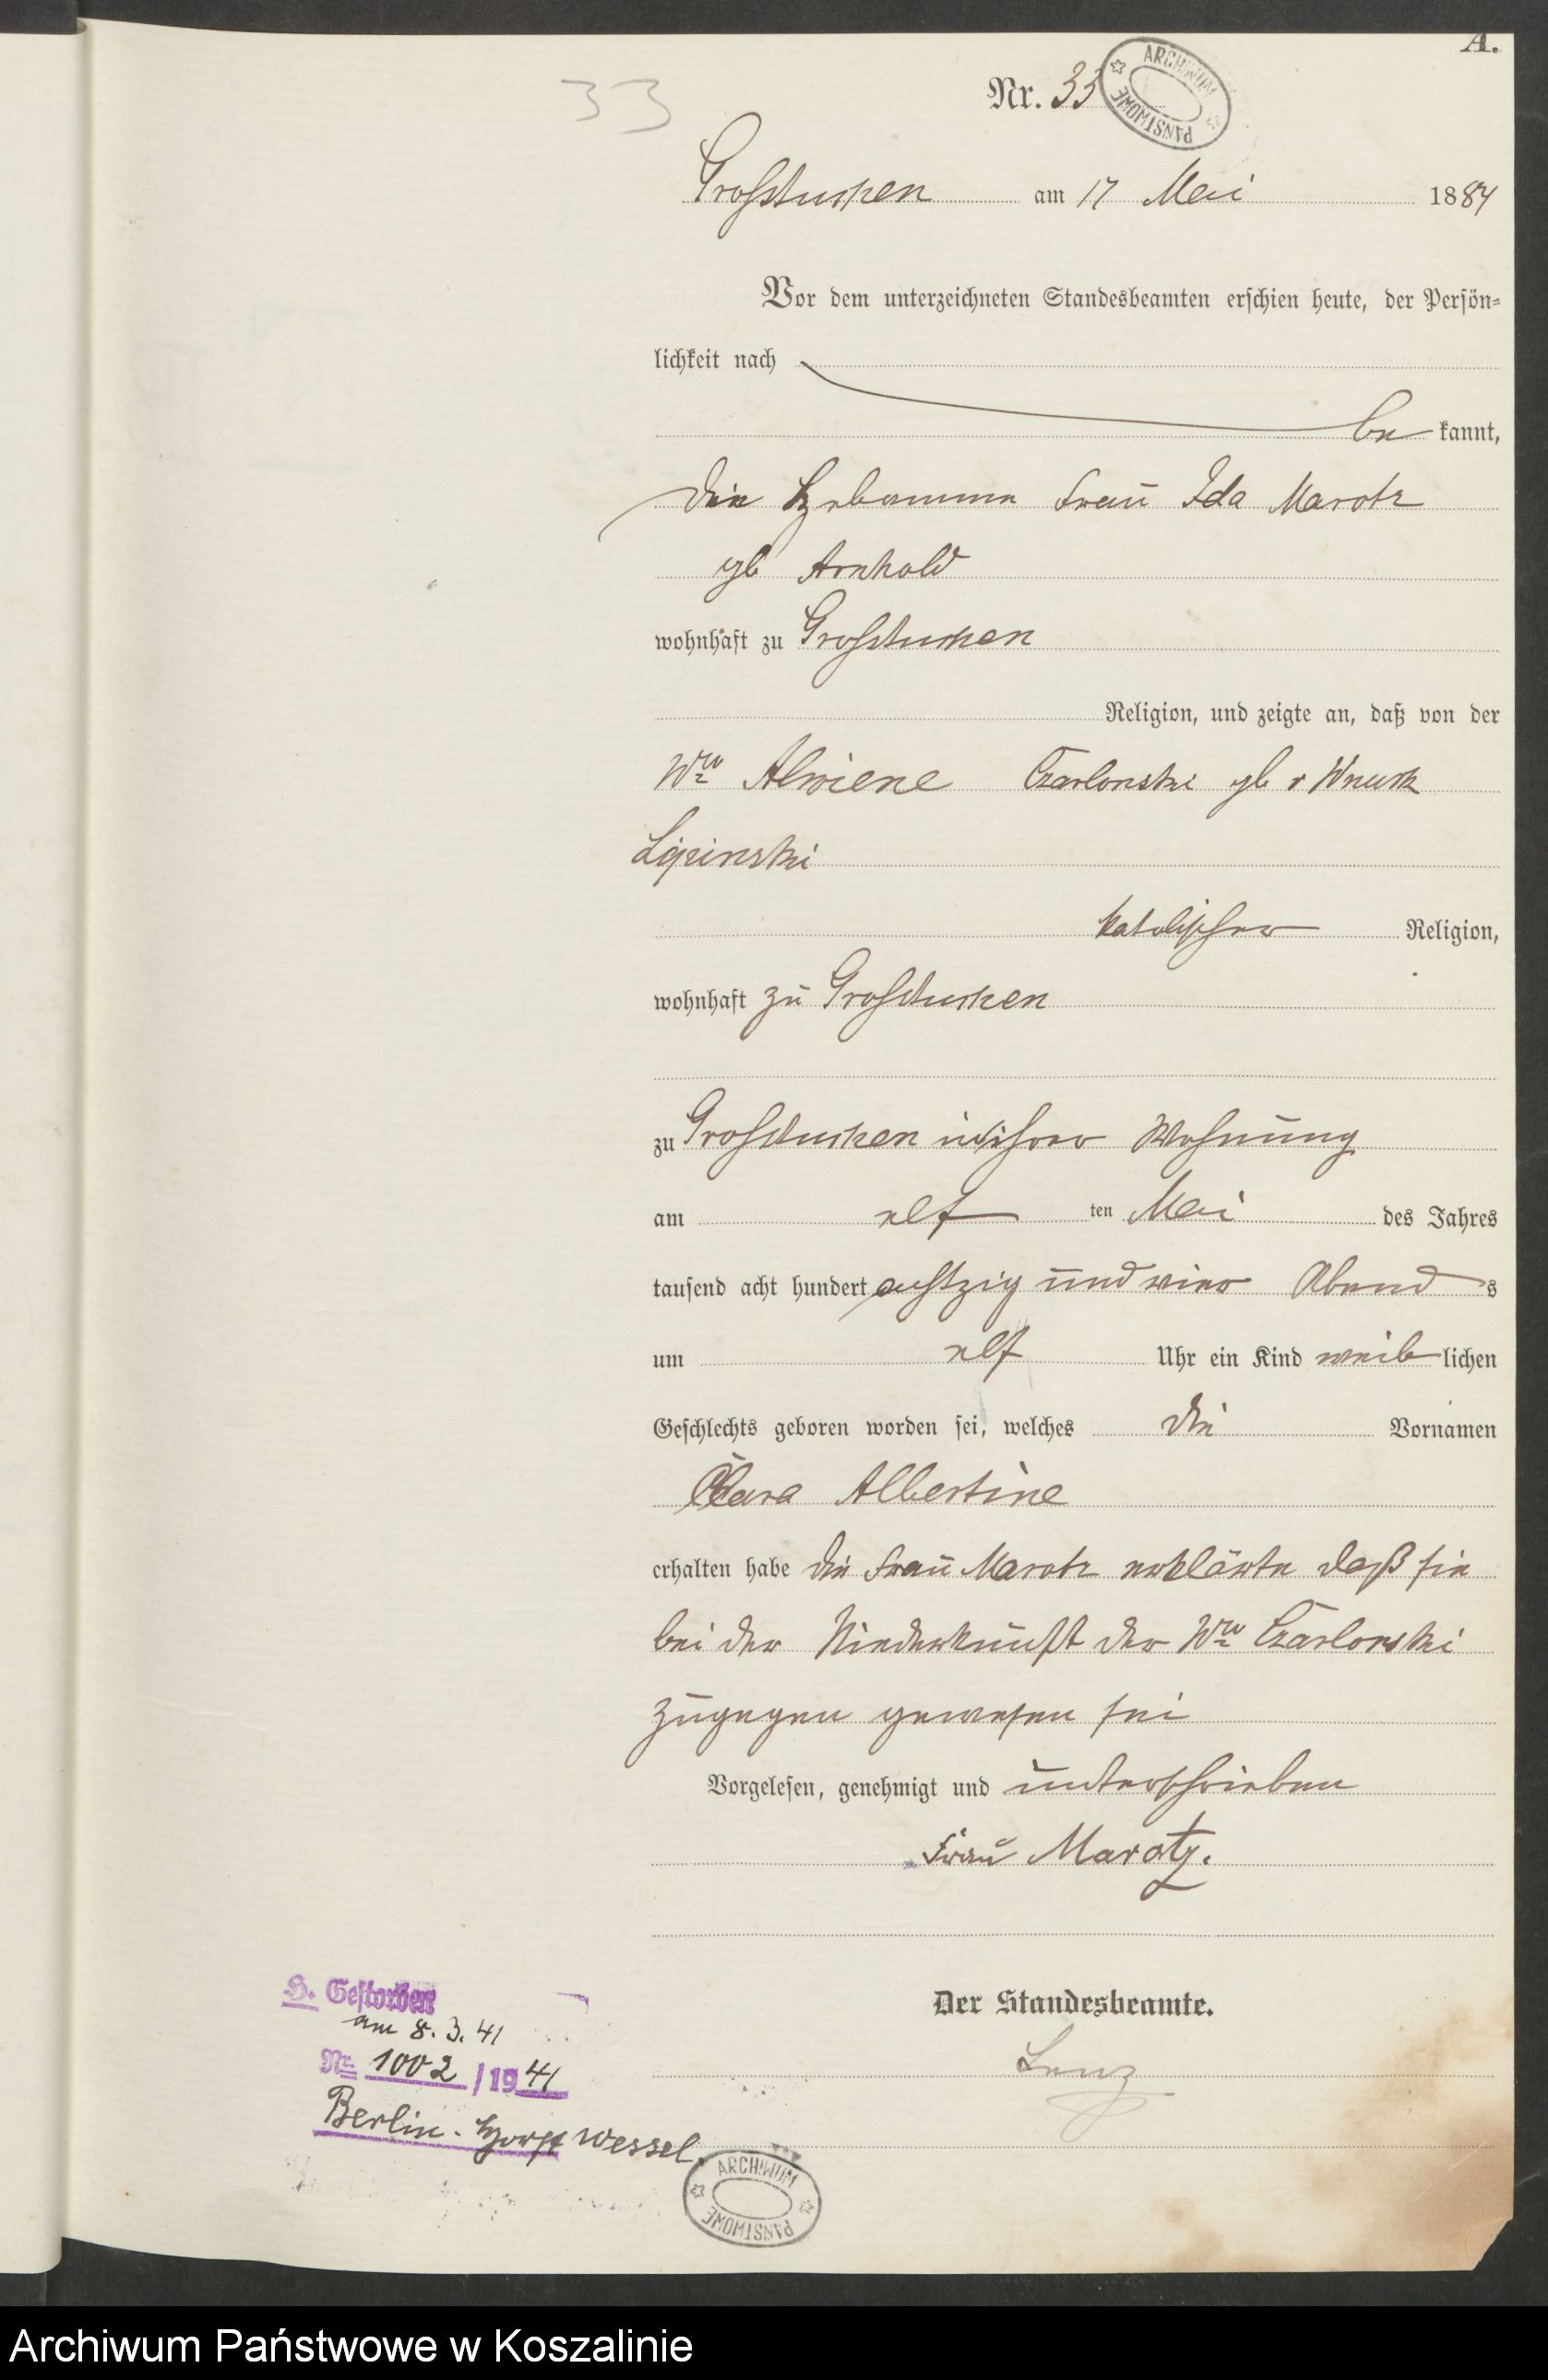 A.
33
Nr. 33
ARCHIWUM PAŃSTWOWE
Großtuchen am 17 Mai 1884
Vor dem unterzeichneten Standesbeamten erschien heute, der Persön-
lichkeit nach
be kannt,
die Hebamme Frau Ida Marotz
gb Arnhold
wohnhaft zu Großtuchen
Religion, und zeigte an, daß von der
Wwe Alwiene Czarlonski gb v Wnuck
Lipinski
katolischer Religion,
wohnhaft zu Großtuchen
zu Großtuchen in ihrer Wohnung
am elf ten Mai des Jahres
tausend acht hundert achtzig und vier Abend s
um elf Uhr ein Kind weib lichen
Geschlechts geboren worden sei, welches die Vornamen
Clara Albertine
erhalten habe die Frau Marotz erklärte daß sie
bei der Niederkunft der Wwe Czarlonski
zugegen gewesen sei
Vorgelesen, genehmigt und unterschrieben
Frau Marotz.
Der Standesbeamte.
Lenz
H. Gestorben
am 8. 3. 41
Nr. 1002 / 1941
Berlin - Horst Wessel.
ARCHIWUM PAŃSTWOWE
Archiwum Państwowe w Koszalinie